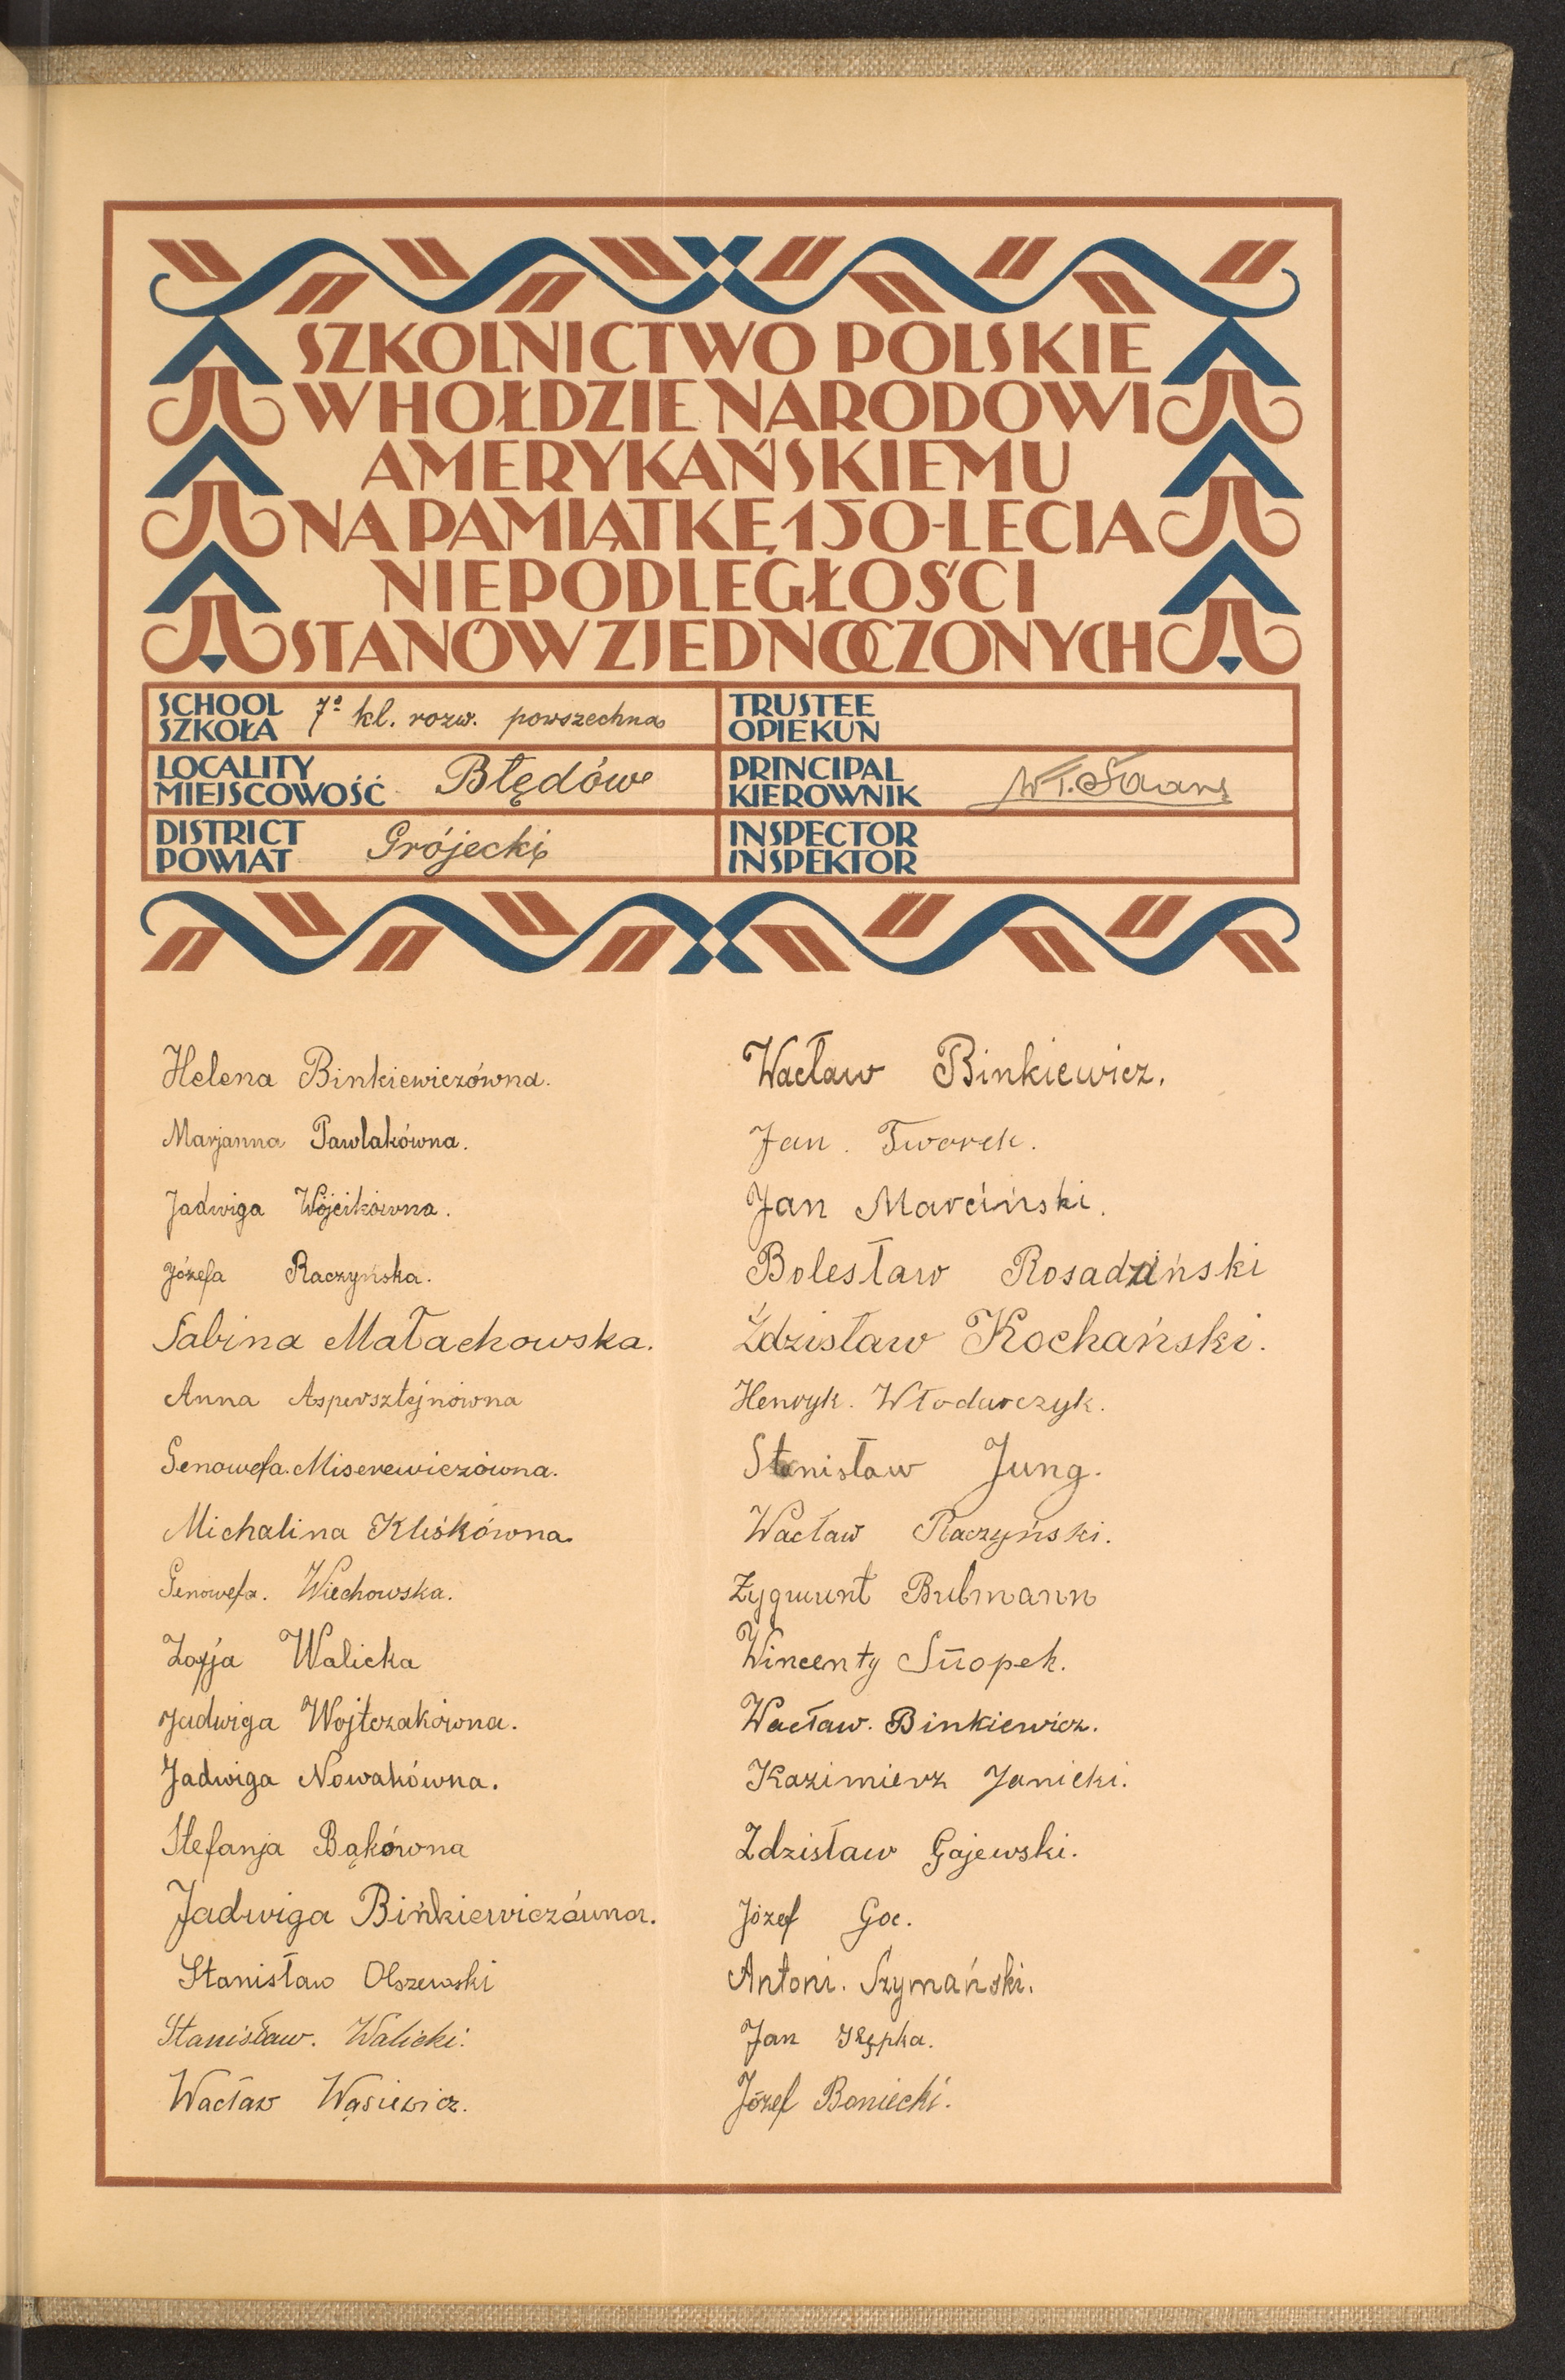 SZKOLNICTWO POLSKIE
W HOŁDZIE NARODOWI
AMERYKAŃSKIEMU
NA PAMIĄTKĘ 150-LECIA
NIEPODLEGŁOŚCI
STANÓW ZJEDNOCZONYCH
SCHOOL
SZKOŁA
7o kl. rozw. powszechna
TRUSTEE
OPIEKUN
LOCALITY
MIEJSCOWOŚĆ
Błędów
PRINCIPAL
KIEROWNIK
Wł.
DISTRICT
POWIAT
Grójecki
INSPECTOR
INSPEKTOR
Helena Binkiewiczówna.
Marjanna Pawlakówna.
Jadwiga Wójcikówna.
Józefa Raczyńska.
Sabina Małachowska.
Anna Aspersztejnówna
Genowefa. Miserewiczówna.
Michalina Kliśkówna.
Genowefa. Wiechowska.
Zofja Walicka
Jadwiga Wojtczakówna.
Jadwiga Nowakówna.
Stefanja Bąkówna
Jadwiga Bińkiewiczówna.
Stanisław Olszewski
Stanisław. Walicki.
Wacław Wąsiewicz.
Wacław Binkiewicz.
Jan. Tworek.
Jan Marciński.
Bolesław Rosadziński
Zdzisław Kochański.
Henryk. Włodarczyk.
Stanisław Jung.
Wacław Raczyński.
Zygmunt Bulmann
Wincenty Snopek.
Wacław. Binkiewicz.
Kazimierz Janicki.
Zdzisław Gajewski.
Józef Goc.
Antoni. Szymański.
Jan
Józef Boniecki.